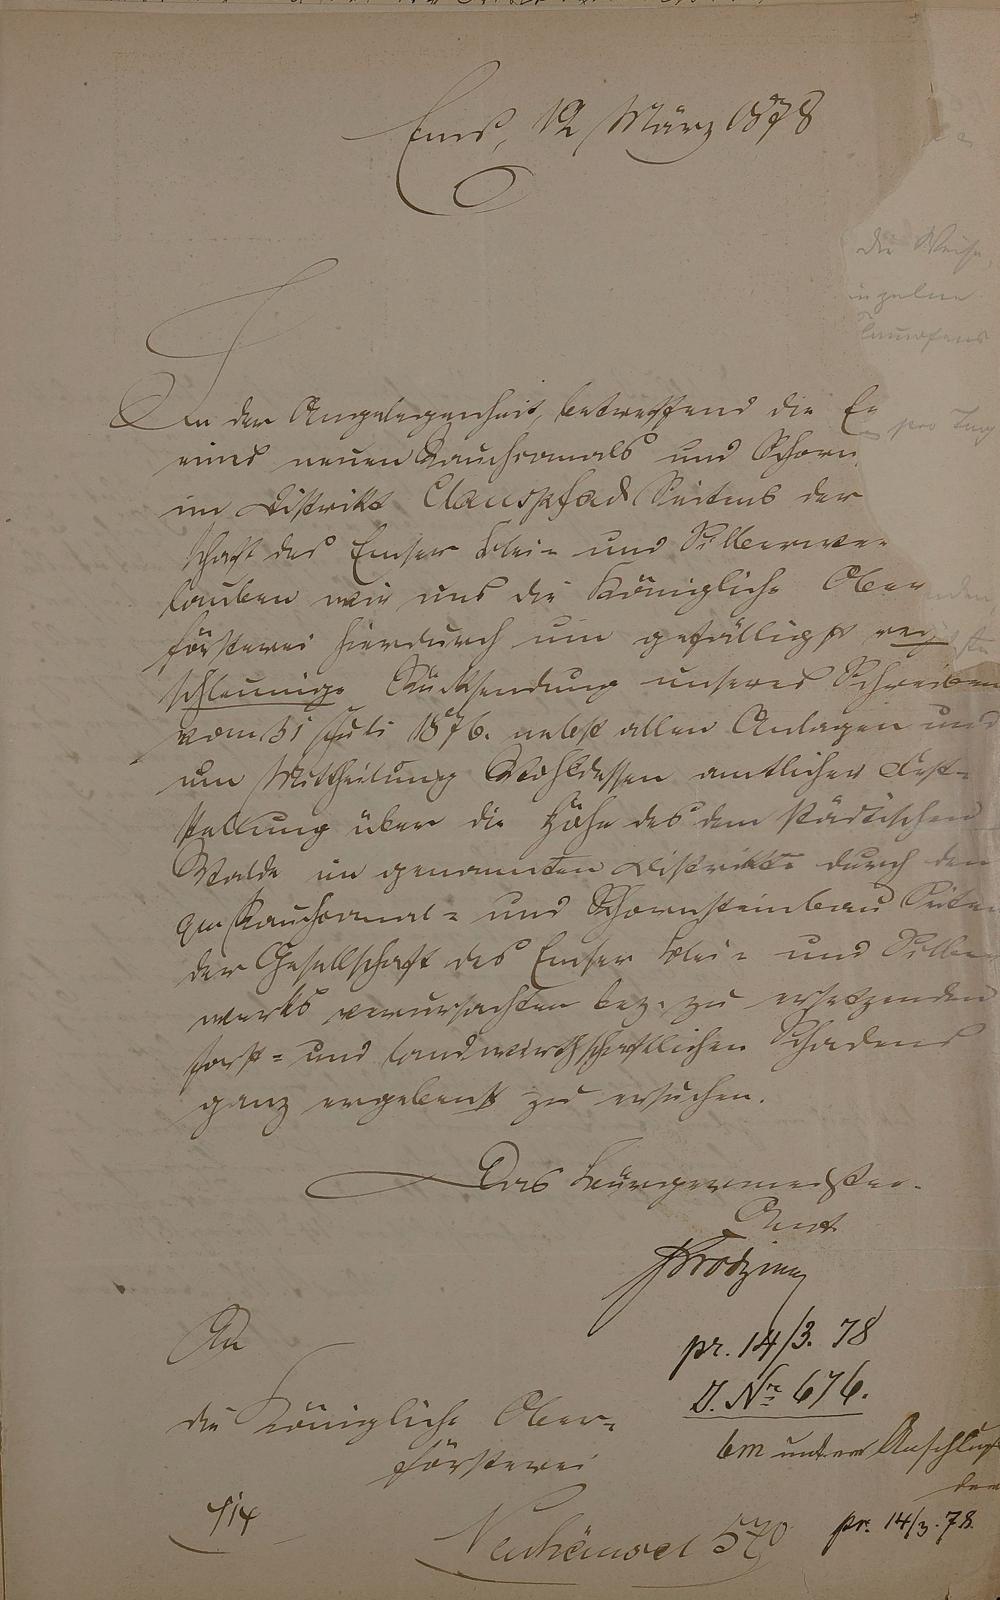 Ems, 12 März 1878
In der Angelegenheit, betreffend die Er
eines neuen Rauchcanals und Schorn
im Distrikt Clauspfad Seitens der
schaft des Emser Blei- und Silberwer-
lauben wir uns die Königliche Ober
försterei hierdurch um gefälligst
schleunige Rücksendung unseres Schreiben
vom 31 Juli 1876. nebst allen Anlagen und
um Mittheilung Wohldessen amtlicher Fest-
stellung über die Höhe des dem städtischen
Walde im genannten Distrikte durch den
qu Rauchcanal- und Schornsteinbau Seiten
der Gesellschaft des Emser Blei- und Silber
werks verursachten bez. zu ersetzenden
forst- und landwirthschaftlichen Schadens
ganz ergebenst zu ersuchen.
Das Bürgermeister-
Amt
An
die Königliche Ober-
försterei
Neuhäusel
pr. 14/3. 78
J. Nr 676.
6m unter Anschluß
der
pr. 14/3. 78.
die Weise,
inzelne
pro Tag